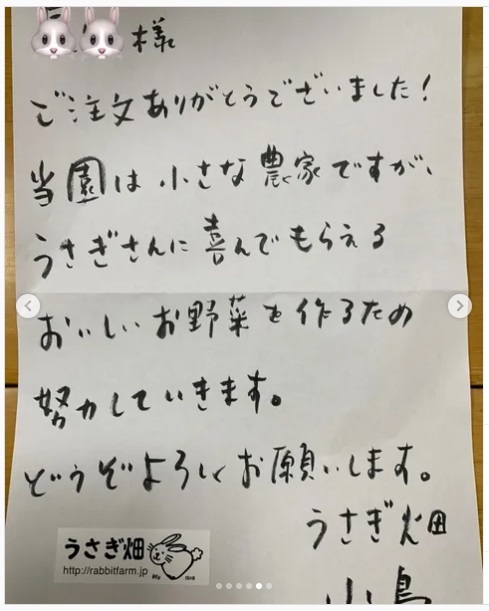 様
ご注文ありがとうでございました！
当園は小さな農家ですが、
うさぎさんに喜んでもらえる
おいしいお野菜を作るため
努力していきます。
どうぞよろしくお願いします。
うさぎ畑
うさぎ畑
http://rabbitfarm.jp
小島